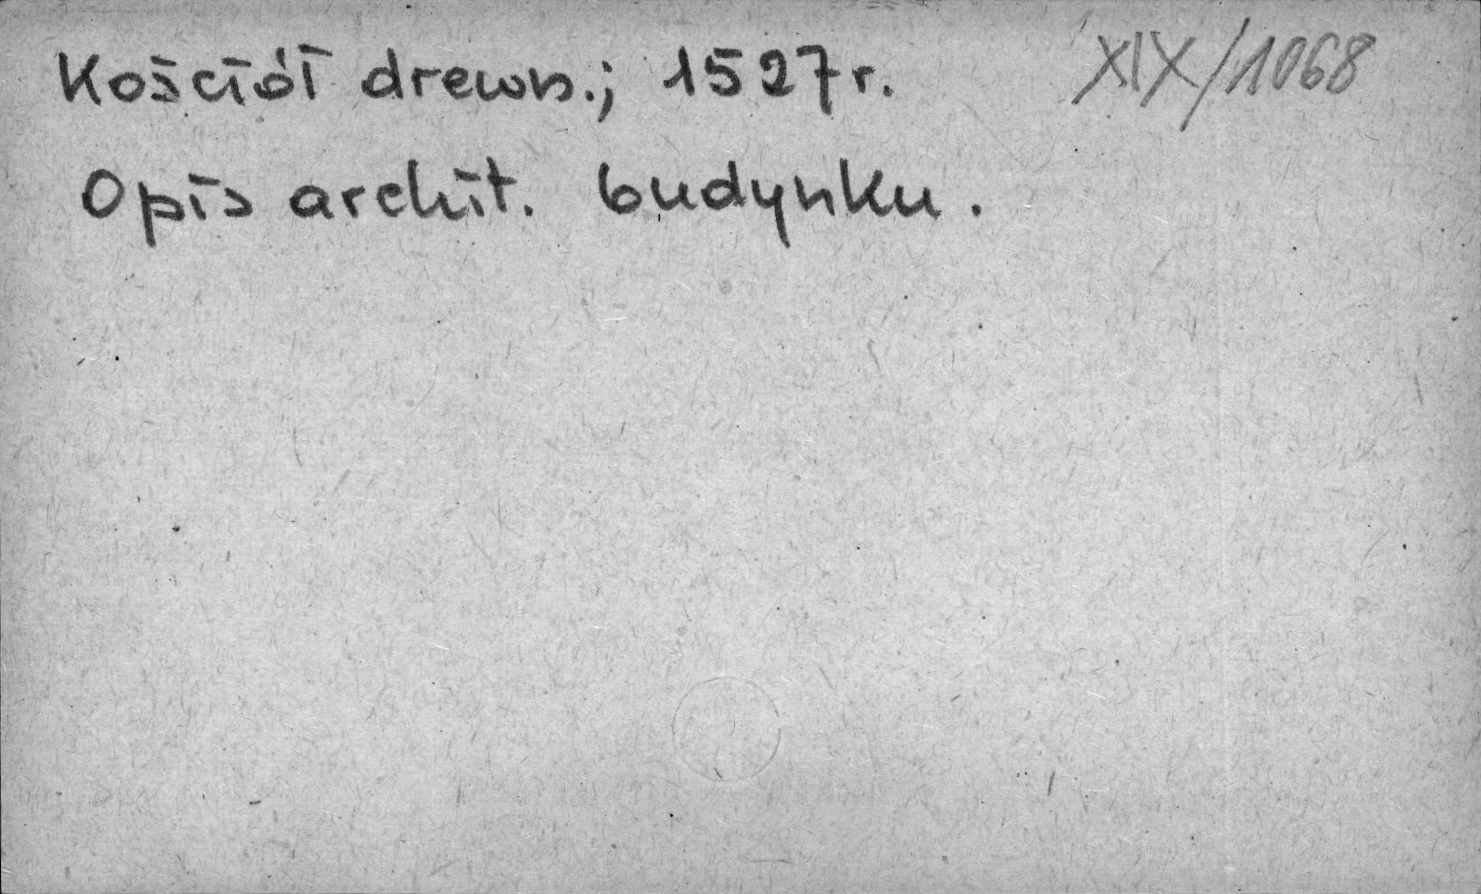 Kościół drewn.; 1527 r. XIX/1068
Opis archit. budynku.